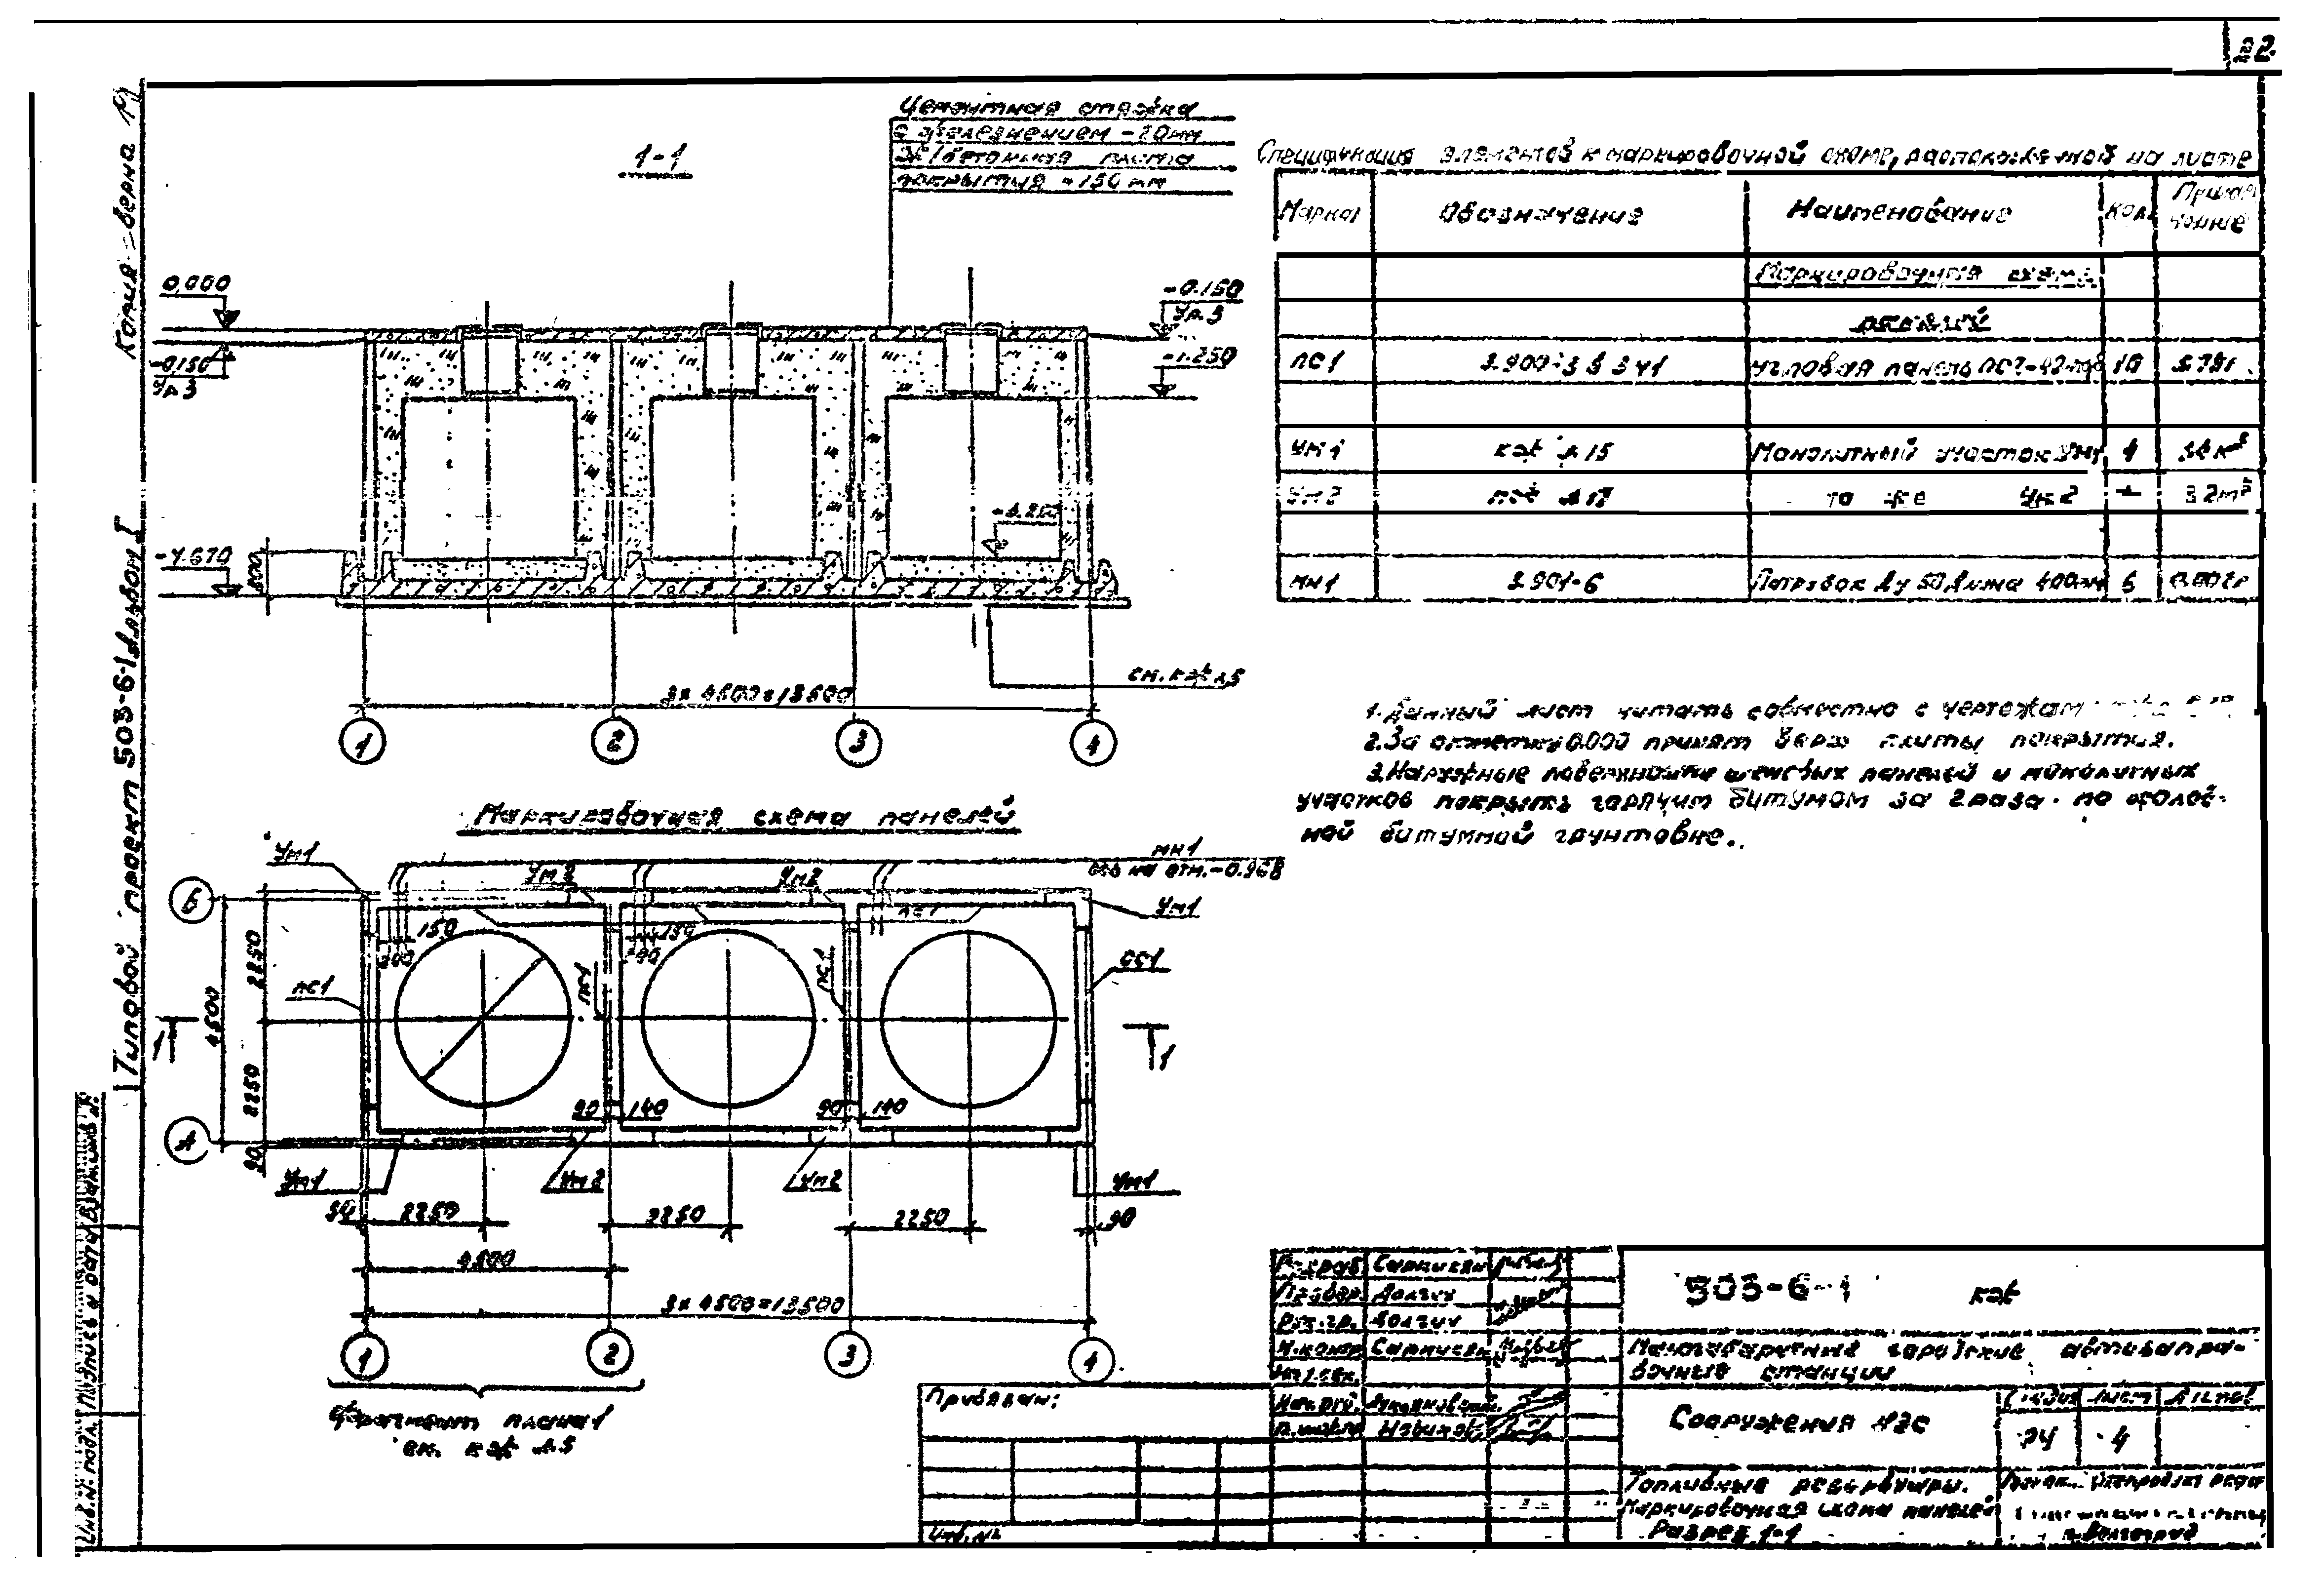 22.
Копия верна
Типовой проект 503-6-1 Альбом I
Инв.N: подл. Подпись и дата Взам.инв.N:
1-1
Цементная отяжка
с железнением - 20мм
ж/бетонная плита
покрытия - 150 мм
0,000
-0.150
Ур.3
-0.150
Ур.3
-1.250
-4.670
800
3 x 4500 = 13500
см. кж л.5
1 2 3 4
Маркировочная схема панелей
Ум1
мн1
ось на отм.-0.968
Ум2 Ум2
Ум1
Б
А
150
300
150
300
пс1
пс1
пс1
пс1
2250
2250
4500
90
1 1
90 140
90 140
Ум1 Ум2 Ум2 Ум1
90 2250 2250 2250 90
4500
3 x 4500 = 13500
1 2 3 4
Фрагмент плана 1
см. кж л.5
Спецификация элементов к маркировочной схеме, расположенной на листе
Марка Обозначение Наименование Кол. Приме-
чание
Маркировочная схема
панелей
ПС1 Угловая панель 10
Ум1 кж л 15 Монолитный участок Ум1 4
Ум2 кж л 17 то же Ум2
мн1 3.901-6 Патрубок Ду 50, длина 400мм 6
1. Данный лист читать совместно с чертежам
2. За отметку 0.000 принят верх плиты покрытия.
3. Наружные поверхности стеновых панелей и монолитных
участков покрыть горячим битумом за 2 раза по холод-
ной битумной грунтовке.
Разраб. Саркисян
Провер. Долгих
Рук.гр. Долгих
Н.контр. Саркисян
Нач.отд.
Новиков
503-6-1 кж
Малогабаритные городские автозапра-
вочные станции
Сооружения АЗС
Стадия Лист Листов
РЧ 4
Топливные резервуары.
Маркировочная схема панелей
Разрез 1-1
г. Волгоград
Привязан:
Инв. N